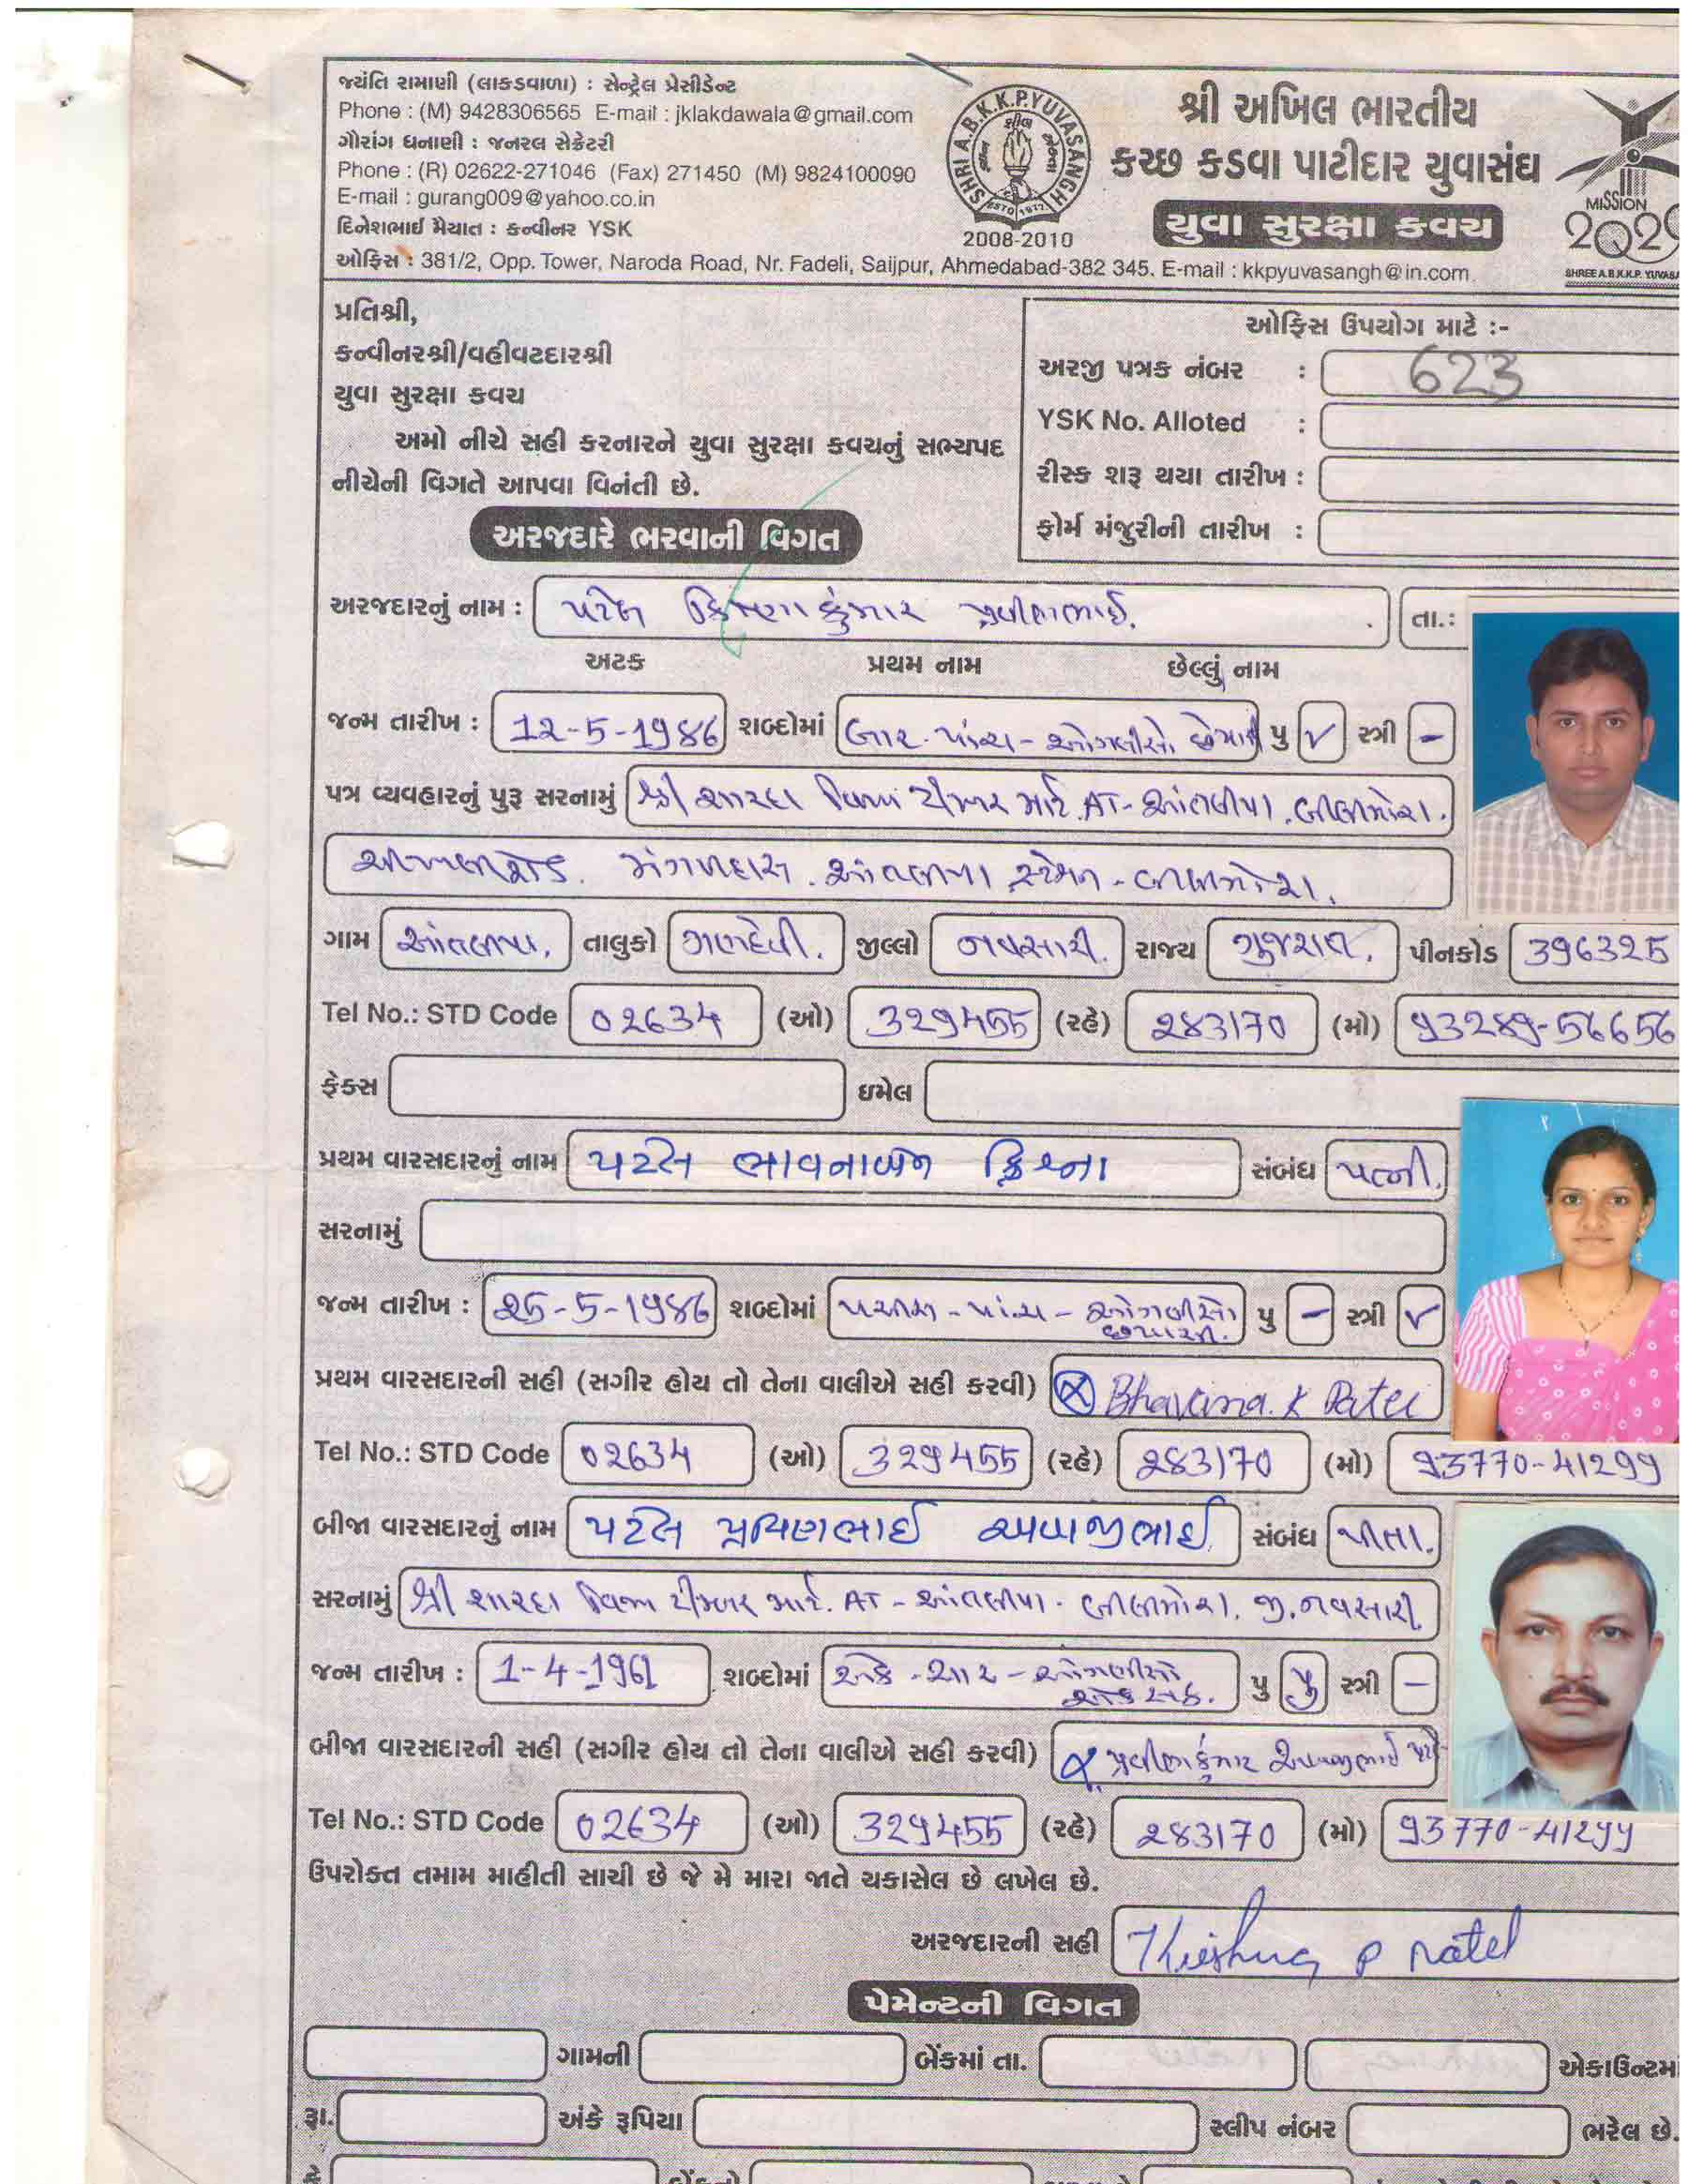 જયંતિ રામાણી (લાકડાવાળા) : સેન્ટ્રેલ પ્રેસીડેન્ટ
Phone : (M) 9428306565 E-mail : jklakdawala@gmail.com
ગૌરાંગ ધનાણી : જનરલ સેક્રેટરી
Phone : (R) 02622-271046 (Fax) 271450 (M) 9824100090
E-mail : gurang009@yahoo.co.in
દિનેશભાઈ મૈયાત : કન્વીનર YSK
ઓફિસ : 381/2, Opp. Tower, Naroda Road, Nr. Fadeli, Saijpur, Ahmedabad-382 345. E-mail : kkpyuvasangh@in.com
SHRI A.B.K.K.P. YUVASANGH
ESTD 1977
2008-2010
શ્રી અખિલ ભારતીય
કચ્છ કડવા પાટીદાર યુવાસંઘ
યુવા સુરક્ષા કવચ
MISSION
SHREE A.B.K.K.P.
પ્રતિશ્રી,
કન્વીનરશ્રી/વહીવટદારશ્રી
યુવા સુરક્ષા કવચ
અમો નીચે સહી કરનારને યુવા સુરક્ષા કવચનું સભ્યપદ
નીચેની વિગતે આપવા વિનંતી છે.
ઓફિસ ઉપયોગ માટે :-
અરજી પત્રક નંબર : 623
YSK No. Alloted :
રીસ્ક શરૂ થયા તારીખ :
ફોર્મ મંજુરીની તારીખ :
અરજદારે ભરવાની વિગત
અરજદારનું નામ : પટેલ ક્રિષ્ણાકુંમાર પ્રવીણભાઈ. તા.:
અટક પ્રથમ નામ છેલ્લું નામ
જન્મ તારીખ : 12-5-1986 શબ્દોમાં બાર-પાંચ-ઓગણીસો પુ ✓ સ્ત્રી –
પત્ર વ્યવહારનું પુરૂ સરનામું શ્રી શારદા વિજય ટીમ્બર માર્ટ. AT-આંતલીયા. બીલીમોરા.
સ્ટેશન - બીલીમોરા.
ગામ આંતલીયા. તાલુકો ગણદેવી. જીલ્લો નવસારી. રાજ્ય ગુજરાત. પીનકોડ 396325
Tel No.: STD Code 02634 (ઓ) 329455 (રહે) 283170 (મો) 93289-56656
ફેક્સ ઇમેલ
પ્રથમ વારસદારનું નામ પટેલ ભાવનાબેન ક્રિશ્ના સંબંધ પત્ની.
સરનામું
જન્મ તારીખ : 25-5-1986 શબ્દોમાં પચીસ - પાંચ - ઓગણીસો છયાસી. પુ – સ્ત્રી ✓
પ્રથમ વારસદારની સહી (સગીર હોય તો તેના વાલીએ સહી કરવી) Bhavana. K Patel
Tel No.: STD Code 02634 (ઓ) 329455 (રહે) 283170 (મો) 93770-41299
બીજા વારસદારનું નામ પટેલ પ્રવિણભાઈ અબજીભાઈ સંબંધ પીતા.
સરનામું શ્રી શારદા વિજય ટીમ્બર માર્ટ. AT - આંતલીયા. બીલીમોરા. જી. નવસારી
જન્મ તારીખ : 1-4-1961 શબ્દોમાં એક - ચાર - ઓગણીસો એકસઠ. પુ પુ સ્ત્રી –
બીજા વારસદારની સહી (સગીર હોય તો તેના વાલીએ સહી કરવી) પ્રવીણકુંમાર અબજીભાઈ
Tel No.: STD Code 02634 (ઓ) 329455 (રહે) 283170 (મો) 93770-41299
ઉપરોક્ત તમામ માહીતી સાચી છે જે મે મારા જાતે ચકાસેલ છે લખેલ છે.
અરજદારની સહી Krishna P Patel
પેમેન્ટની વિગત
ગામની બેંકમાં તા. એકાઉન્ટમાં
રૂા. અંકે રૂપિયા સ્લીપ નંબર ભરેલ છે.